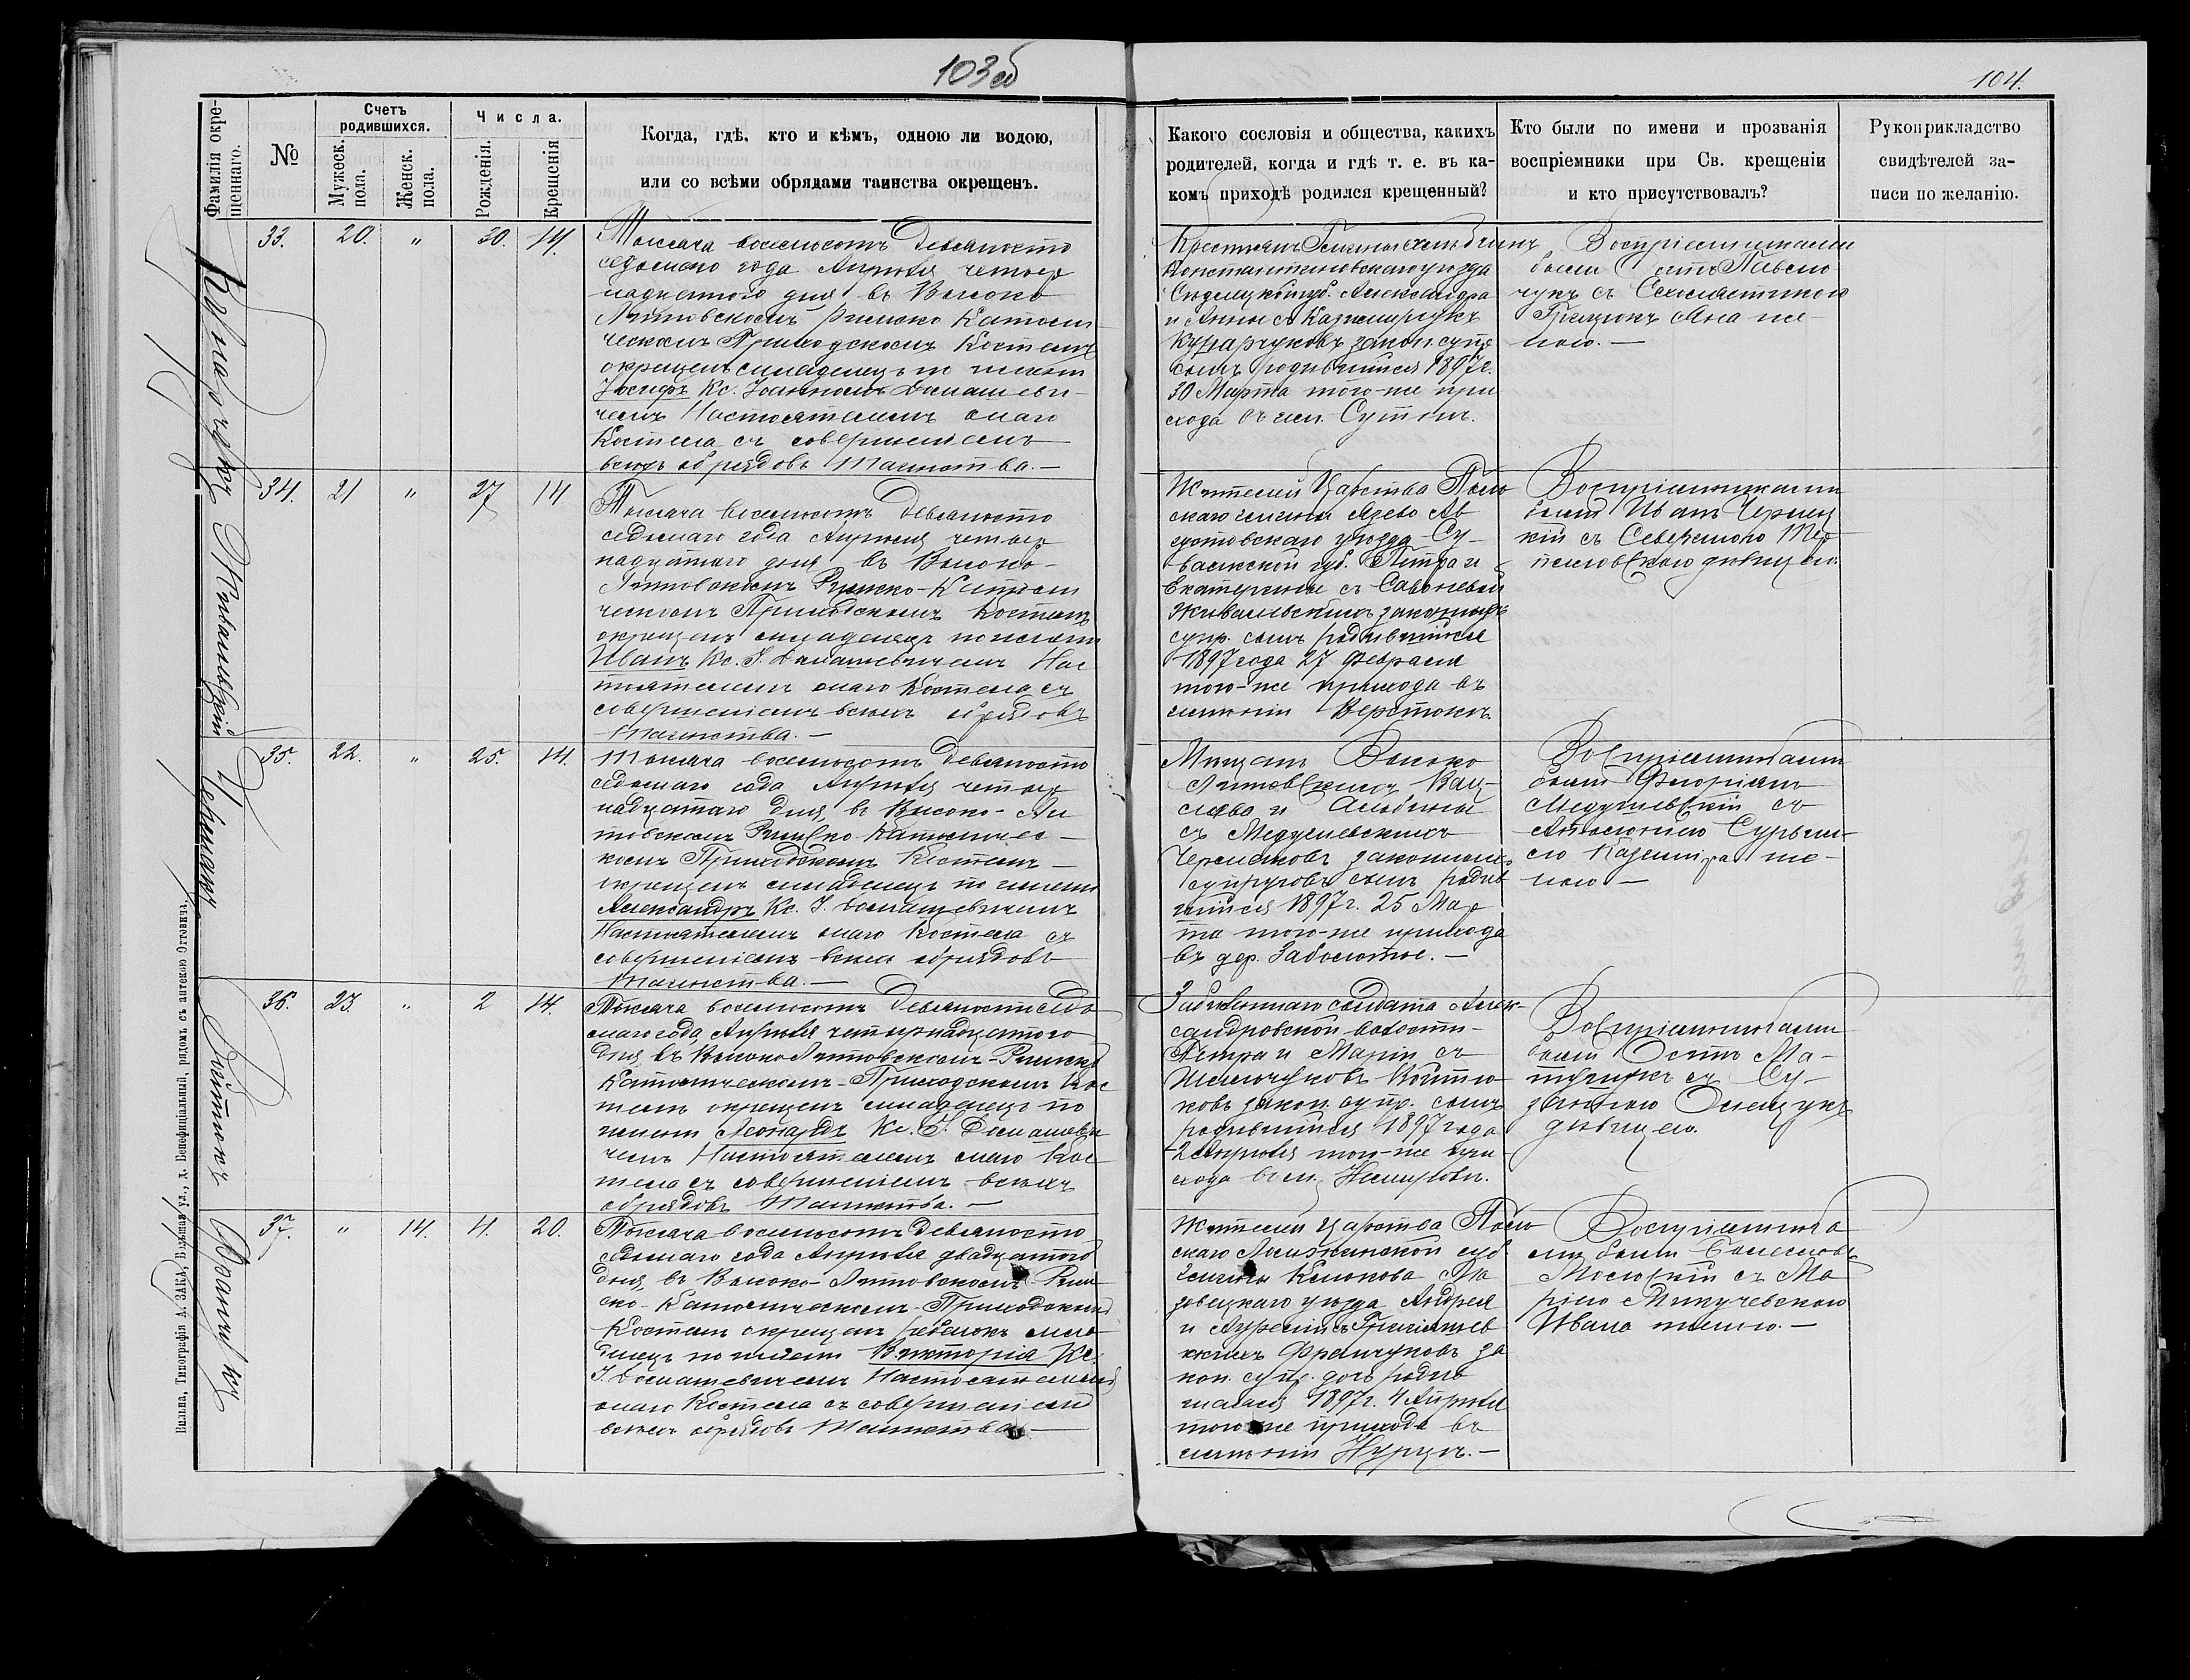 103об
104.
Фамилія окрещеннаго.
№
Счетъ родившихся.
Мужеск. пола.
Женск. пола.
Числа.
Рожденія.
Крещенія
Когда, гдѣ, кто и кѣмъ, одною ли водою,
или со всѣми обрядами таинства окрещенъ.
Какого сословія и общества, какихъ
родителей, когда и гдѣ т. е. въ ка-
комъ приходѣ родился крещенный?
Кто были по имени и прозванія
воспріемники при Св. крещеніи
и кто присутствовалъ?
Рукоприкладство
свидѣтелей за-
писи по желанію.
33. 20. " 30. 14.
Тысяча восемьсотъ девяносто
седьмого года Апрѣля четыр
надцатого дня въ Высоко
Литовскомъ Римско Католи
ческомъ Приходскомъ Костелѣ
окрещенъ младенецъ по имени
Іосифъ Кс. Іоанномъ Домашеви-
чемъ Настоятелемъ онаго
Костела съ совершеніемъ
всѣхъ обрядовъ Таинства.—
Крестьянъ Гмины
Константиновскаго уѣзда
Сѣдлецкой губ. Александра
и Анны съ Казимируковъ
законн. супр.
сынъ родившійся 1897 г.
30 Марта того-же при
хода въ им.
Воспріемниками
были
чукъ съ
женою.—
34. 21 " 27 14
Жвальвскій
Тысяча восемьсотъ девяносто
седьмаго года Апрѣля четыр
надцатаго дня въ Высоко-
Литовскомъ Римско-Католи
ческомъ Приходскомъ Костелѣ
окрещенъ младенецъ по имени
Иванъ Кс. І. Домашевичемъ Нас
тоятелемъ онаго Костела съ
совершеніемъ всѣхъ обрядовъ
Таинства.—
Жителей Царства Поль
скаго гмины Ав
густовскаго уѣзда Су-
валкской губ. Петра и
Екатерины съ
законныхъ
супр. сынъ родившійся
1897 года 27 Февраля
того-же прихода въ
имѣніи Верстокъ
Воспріемниками
были Иванъ
кій съ Северыною
дѣвицею.
35. 22. " 25. 14.
Чермакъ
Тысяча восемьсотъ девяносто
седьмаго года Апрѣля четыр
надцатаго дня, въ Высоко-Ли
товскомъ Римско Католичес-
комъ Приходскомъ Костелѣ
окрещенъ младенецъ по имени
Александръ Кс. І. Домашевичемъ
Настоятелемъ онаго Костела съ
совершеніемъ всѣхъ обрядовъ
Таинства.—
Мѣщанъ Высоко
Литовскихъ Вац-
лава и Альбины
съ Медушевскихъ
Чермаковъ законныхъ
супруговъ сынъ родив
шійся 1897 г. 25 Мар
та того-же прихода
въ дер. Заболотье.—
Воспріемниками
были Флоріанъ
Медушевскій съ
Антониною
Казиміра же-
ною—
36. 23. " 2 14.
Войтюкъ
Тысяча восемьсотъ девяносто седь
маго года Апрѣля четырнадцатого
дня въ Высоко Литовскомъ-Римско
Католическомъ-Приходскомъ Кос
телѣ окрещенъ младенецъ по
имени Леонардъ Кс. І. Домашеви
чемъ Настоятелемъ онаго Кос
тела съ совершеніемъ всѣхъ
обрядовъ Таинства.—
солдата Алек-
сандровской волости-
Петра и Маріи съ
Войтю-
ковъ закон. супр. сынъ
родившійся 1897 года
2 Апрѣля того-же при
хода въ
Воспріемниками
были Осипъ Ма-
съ Су-
занною
дѣвицею.
37. " 14. 4. 20.
Франчукъ
Тысяча восемьсотъ девяносто
седьмаго года Апрѣля двадцатого
дня, въ Высоко-Литовскомъ-Рим
ско-Католическомъ-Приходскомъ
Костелѣ окрещенъ ребенокъ мла
денецъ по имени Викторія Кс.
І. Домашевичемъ Настоятелемъ
онаго Костела съ совершеніемъ
всѣхъ обрядовъ Таинства—
Жителей Царства Поль
скаго Ломжинской губ.
гмины Клюкова Ма
зовецкаго уѣзда Андрея
и
Франчуковъ за
кон. супр. дочь родив
шаяся 1897 г. 4 Апрѣля
того-же прихода въ
имѣніи Нурецъ.—
Воспріемника
ми были Болеславъ
съ Ма
ріею
Ивана женою.—
Вильна, Типографія А. ЗАКА, Большая ул., д. Бенефиціальный, рядомъ съ аптекою Отговича.